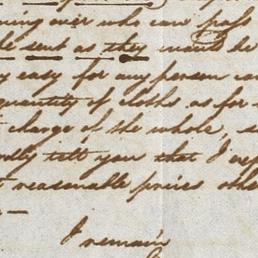 ning over who can pass
le sent as they would be
y easy for any person ca
quantity of cloths as for
charge of the whole, se
ntly tell you that I exp
t reasonable prices othe
I remain